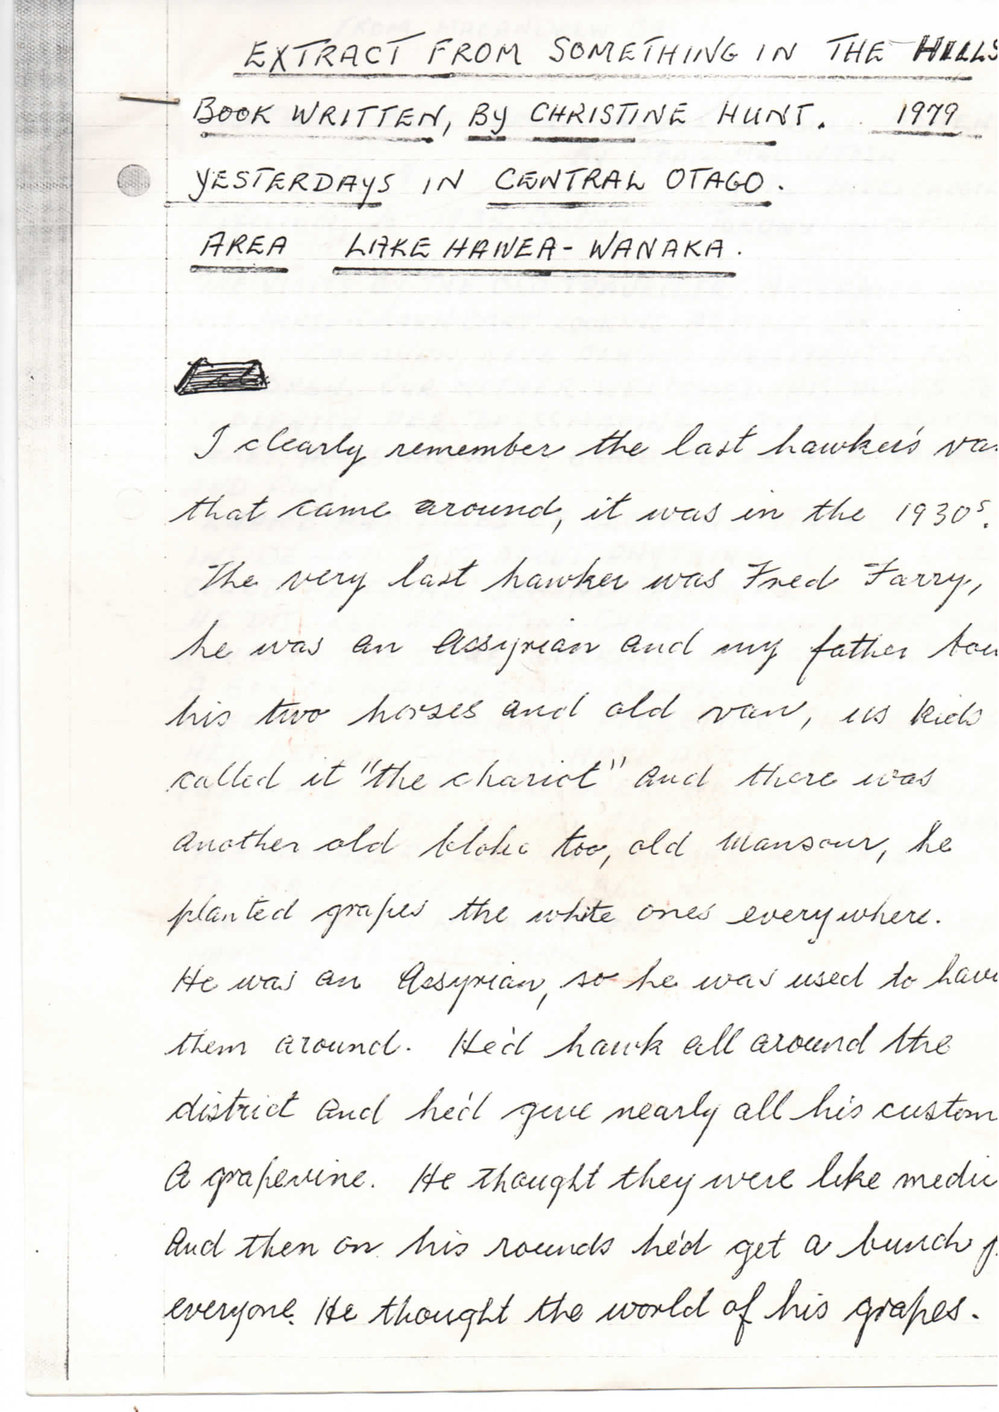 EXTRACT FROM SOMETHING IN THE HILLS
BOOK WRITTEN, BY CHRISTINE HUNT. 1979
YESTERDAYS IN CENTRAL OTAGO.
AREA LAKE HAWEA-WANAKA.
I clearly remember the last hawker's va
that came around, it was in the 1930s.
The very last hawker was Fred Farry,
he was an Assyrian and my father bou
his two horses and old van, us kids
called it "the chariot" and there was
another old bloke too, old Mansour, he
planted grapes the white ones everywhere.
He was an Assyrian, so he was used to have
them around. He'd hawk all around the
district and he'd give nearly all his custom
A grapevine. He thought they were like medic
And then on his rounds he'd get a bunch f
everyone. He thought the world of his grapes.